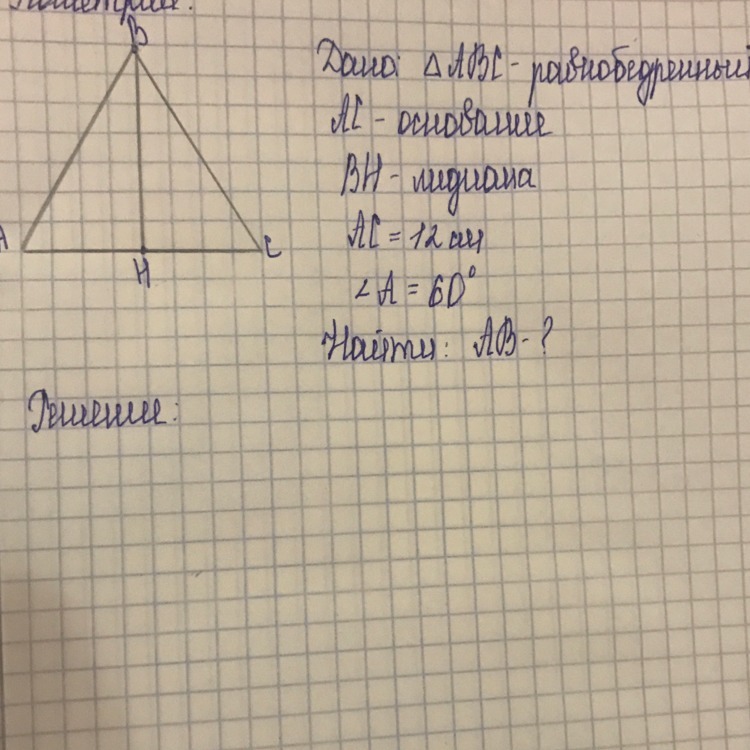 Геометрия.
B
Дано: △ABC - равнобедренный
AC - основание
BH - медиана
A
C
AC = 12 см
H
∠A = 60°
Найти: AB - ?
Решение: